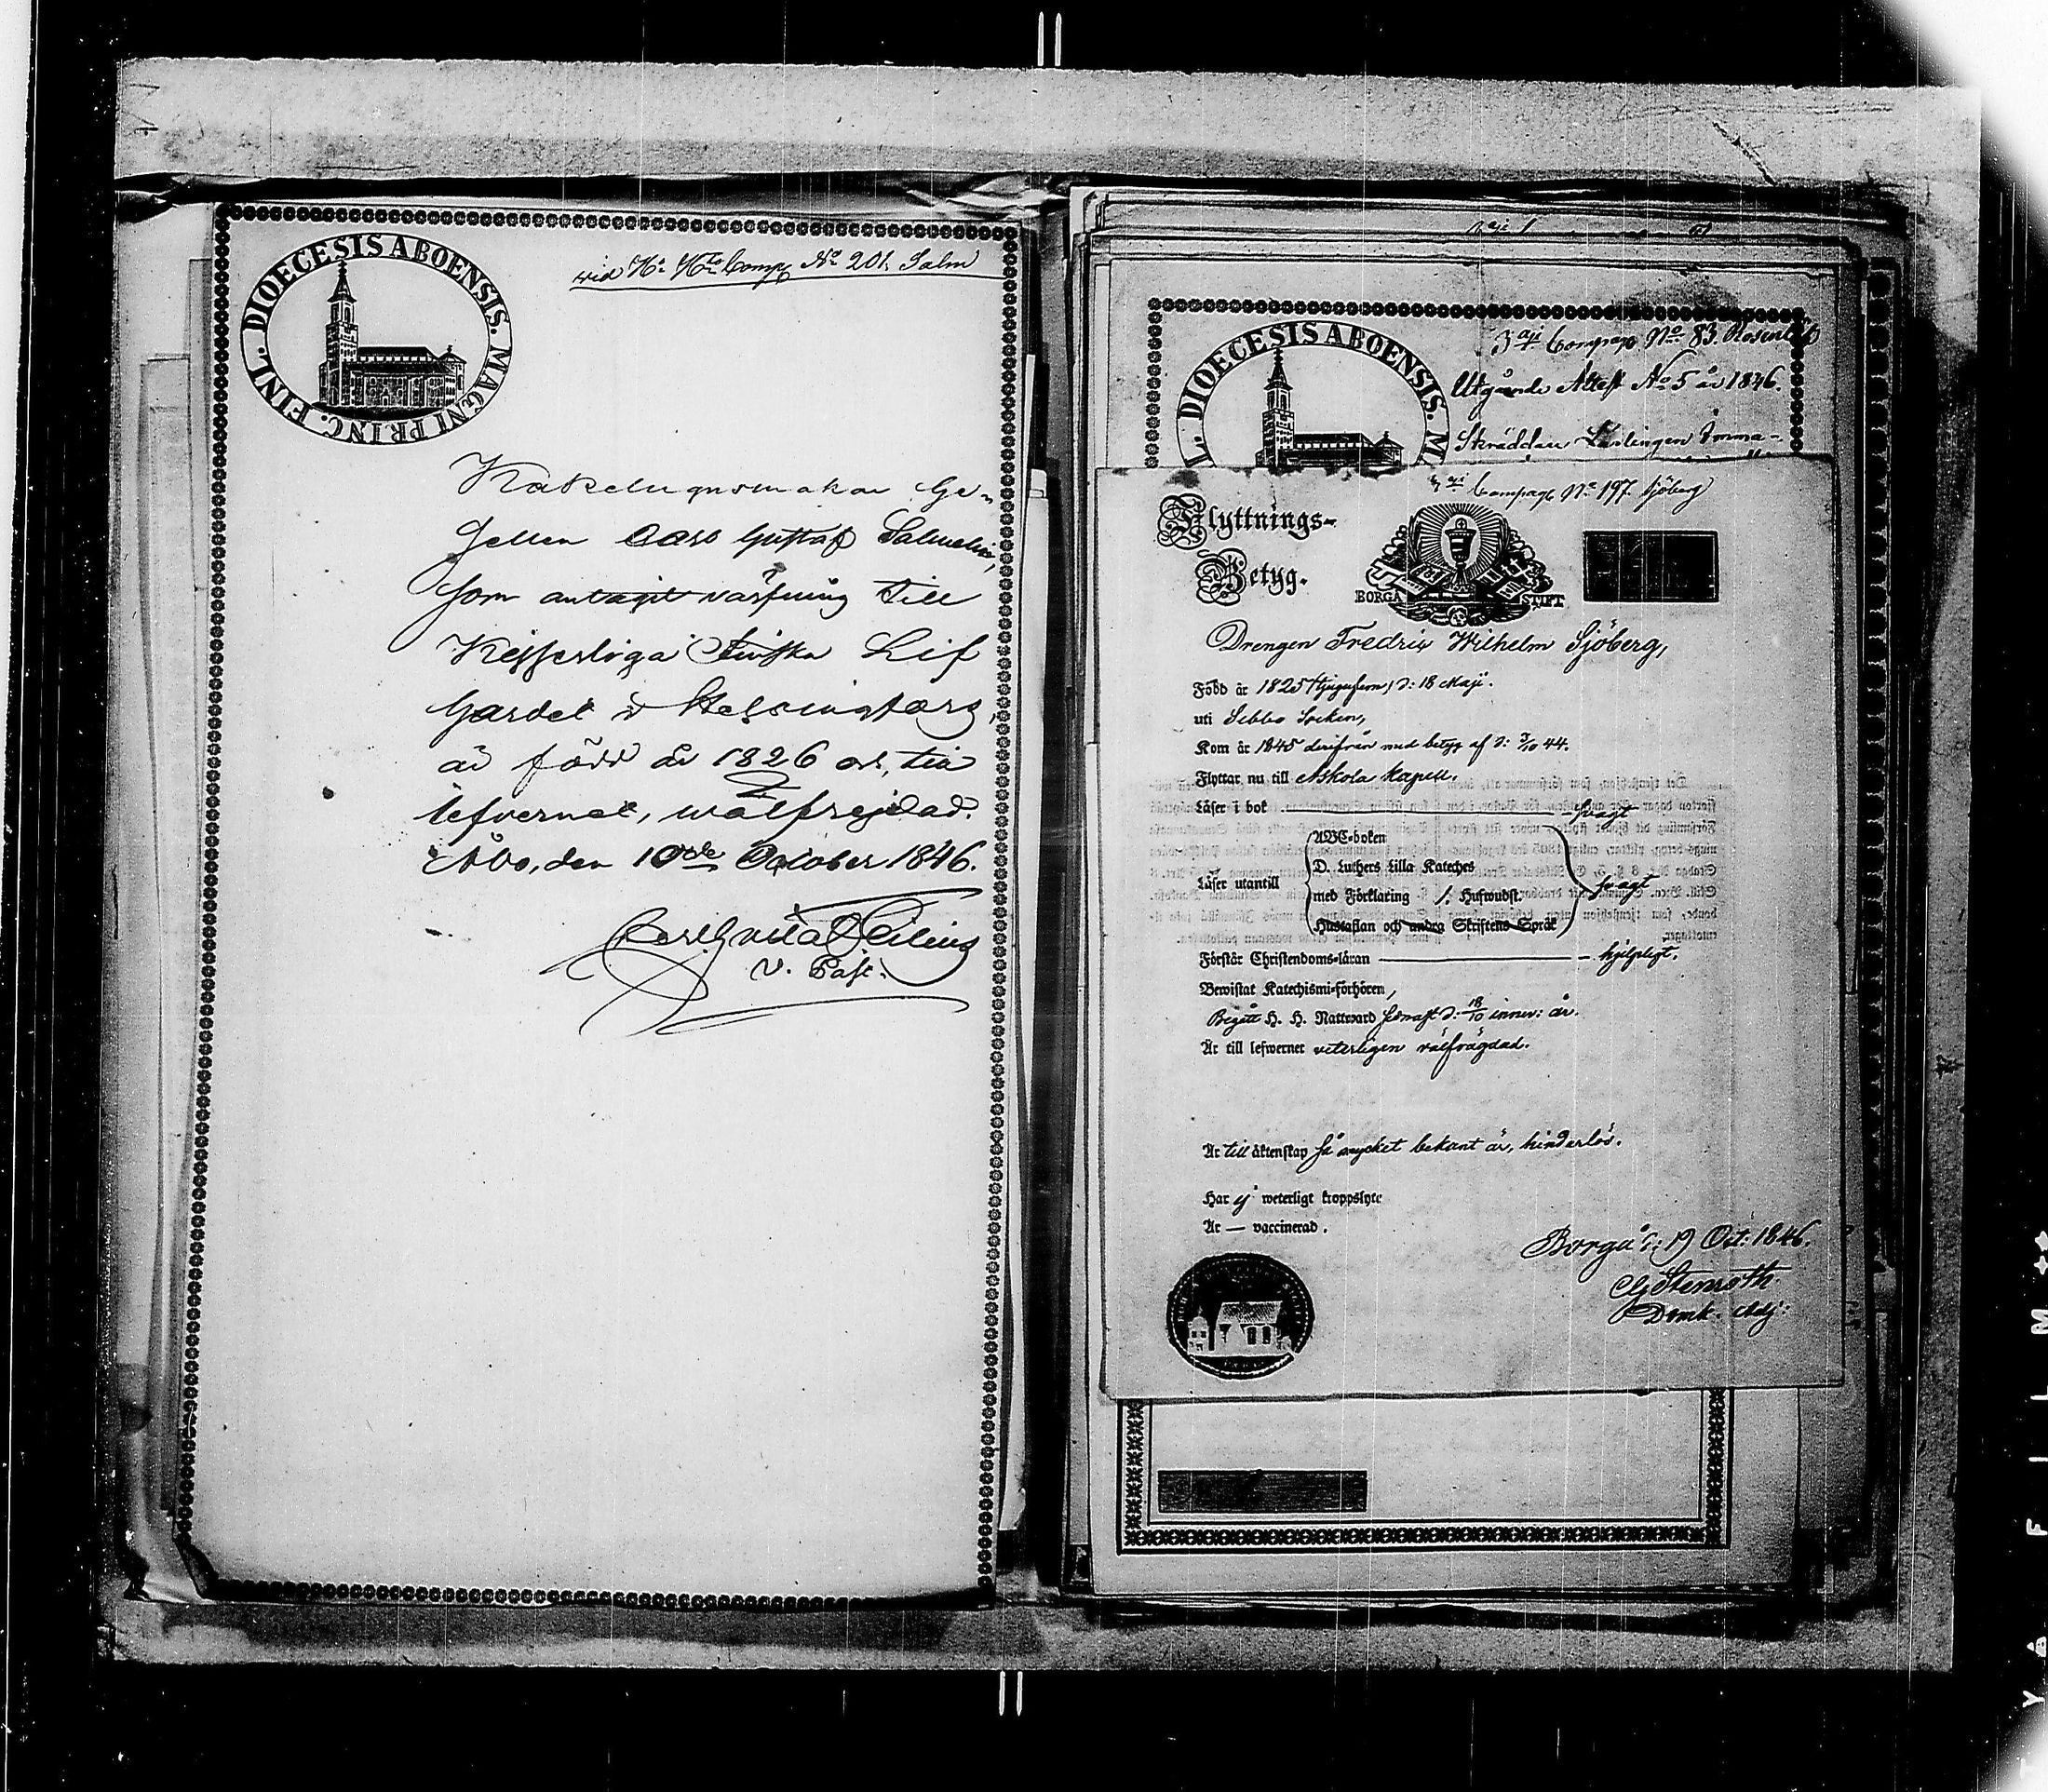 DIOECESIS ABOENSIS. MAGNI PRINC. FINL.
wid Comp No 201. Salm
Kakelugnsmakar Ge-
sellen Carl Gustaf Salmelin,
som antagit värfning till
Kejserliga Finska Lif
Gardet i Helsingfors,
är född år 1826 och, till
lefvernet, wälfrejdad.
Åbo, den 10de October 1846.
V. Past.
DIOECESIS ABOENSIS. M
L.
3dje Compag No 83. Rosenlöf
Utgående Attest No 5 år 1846.
Skräddare Lärlingen Imma-
Compag No 197 Sjöberg
Flyttnings-
Betyg.
BORGÅ STIFT
Drengen Fredric Wilhelm Sjöberg,
Född år 1825 tjugufem, d: 18 Maji.
uti Sibbo Socken,
Kom år 1845 derifrån med betyg af d: 3/10 44.
Flyttar nu till Askola Kapell.
Läser i bok svagt
ABC-boken
D. Luthers Lilla Kateches
Läser utantill med Förklaring /: Hufwudst. svagt
Hustaflan och andra Skriftens Språk
Förstår Christendoms-läran hjelpligt.
Bewistat Katechismi-förhören,
Begått H. H. Nattward sednast d: 18/10 innev: år.
Är till lefwernet veterligen välfrägdad.
Är till äktenskap så mycket bekant är, hinderlös.
Har ej weterligt kroppslyte
Är — vaccinerad.
Borgå d: 19 Oct: 1846.
Stenroth
Domk. Adj:
FILM